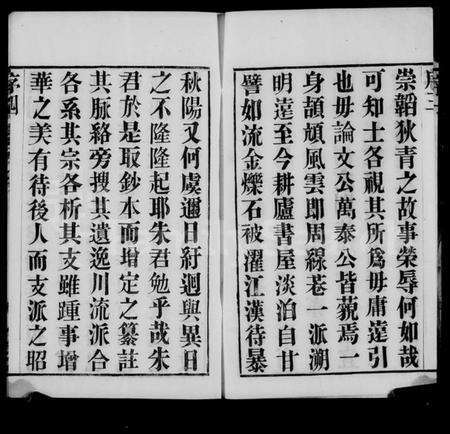 崇韜狄青之故事榮辱何如哉
可知士各視其所爲毋庸遠引
也毋論文公萬泰公皆藐焉一
身頡頏風雲即周線巷一派溯
明遠至今耕廬書屋淡泊自甘
譬如流金爍石被濯江漢待暴
秋陽又何虞邇日紆迴與異日
之不隆隆起耶朱君勉乎哉朱
君於是取鈔本而增定之纂註
其脉絡旁搜其遺逸川流派合
各系其宗各析其支雖踵事增
華之美有待後人而支派之昭